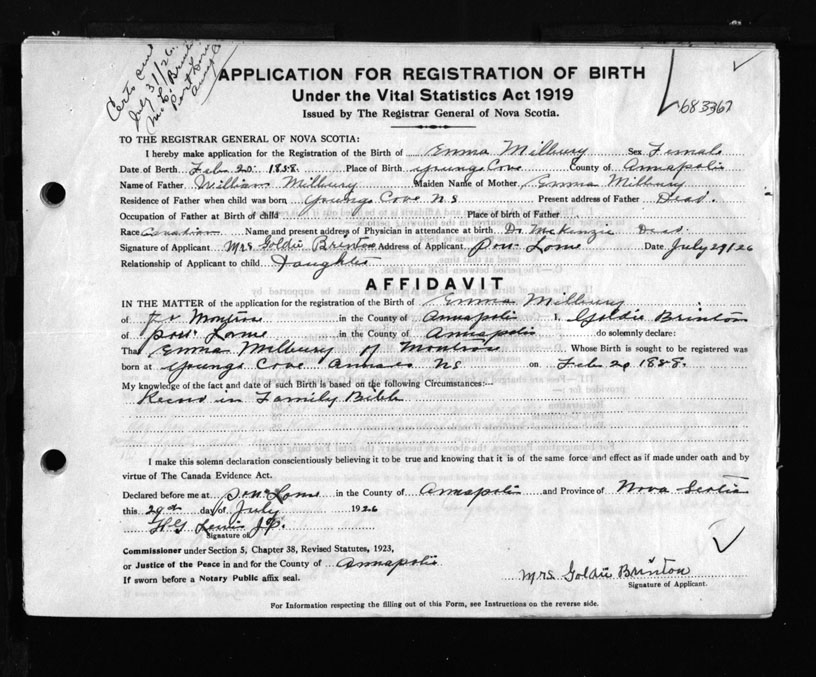 Certs sent
July 31/26.
Mrs L. Brinton
Port Lorne
Anna Co
APPLICATION FOR REGISTRATION OF BIRTH
683367
Under the Vital Statistics Act 1919
Issued by The Registrar General of Nova Scotia.
TO THE REGISTRAR GENERAL OF NOVA SCOTIA:
I hereby make application for the Registration of the Birth of Emma Milbury Sex Female
Date of Birth Feb 20 1888. Place of Birth Youngs Cove County of Annapolis
Name of Father William Milbury Maiden Name of Mother Emma Milbury
Residence of Father when child was born Youngs Cove NS Present address of Father Dead.
Occupation of Father at Birth of child Place of birth of Father
Race Canadian Name and present address of Physician in attendance at birth Dr. McKenzie Dead.
Signature of Applicant Mrs Goldie Brinton Address of Applicant Port Lorne Date July 29/26
Relationship of Applicant to child Daughter
AFFIDAVIT
IN THE MATTER of the application for the registration of the Birth of Emma Milbury
of in the County of Annapolis I, Goldie Brinton
of Port Lorne in the County of Annapolis do solemnly declare:
That Emma Milbury of Whose Birth is sought to be registered was
born at Youngs Cove NS on Feb 20 1888.
My knowledge of the fact and date of such Birth is based on the following Circumstances:—
Record in Family Bible
I make this solemn declaration conscientiously believing it to be true and knowing that it is of the same force and effect as if made under oath and by
virtue of The Canada Evidence Act.
Declared before me at Port Lorne in the County of Annapolis and Province of Nova Scotia
this 29th day of July 1926
H.G. Lewis J.P.
Signature of
Commissioner under Section 5, Chapter 38, Revised Statutes, 1923,
or Justice of the Peace in and for the County of Annapolis
If sworn before a Notary Public affix seal.
Mrs Goldie Brinton
Signature of Applicant.
For Information respecting the filling out of this Form, see Instructions on the reverse side.